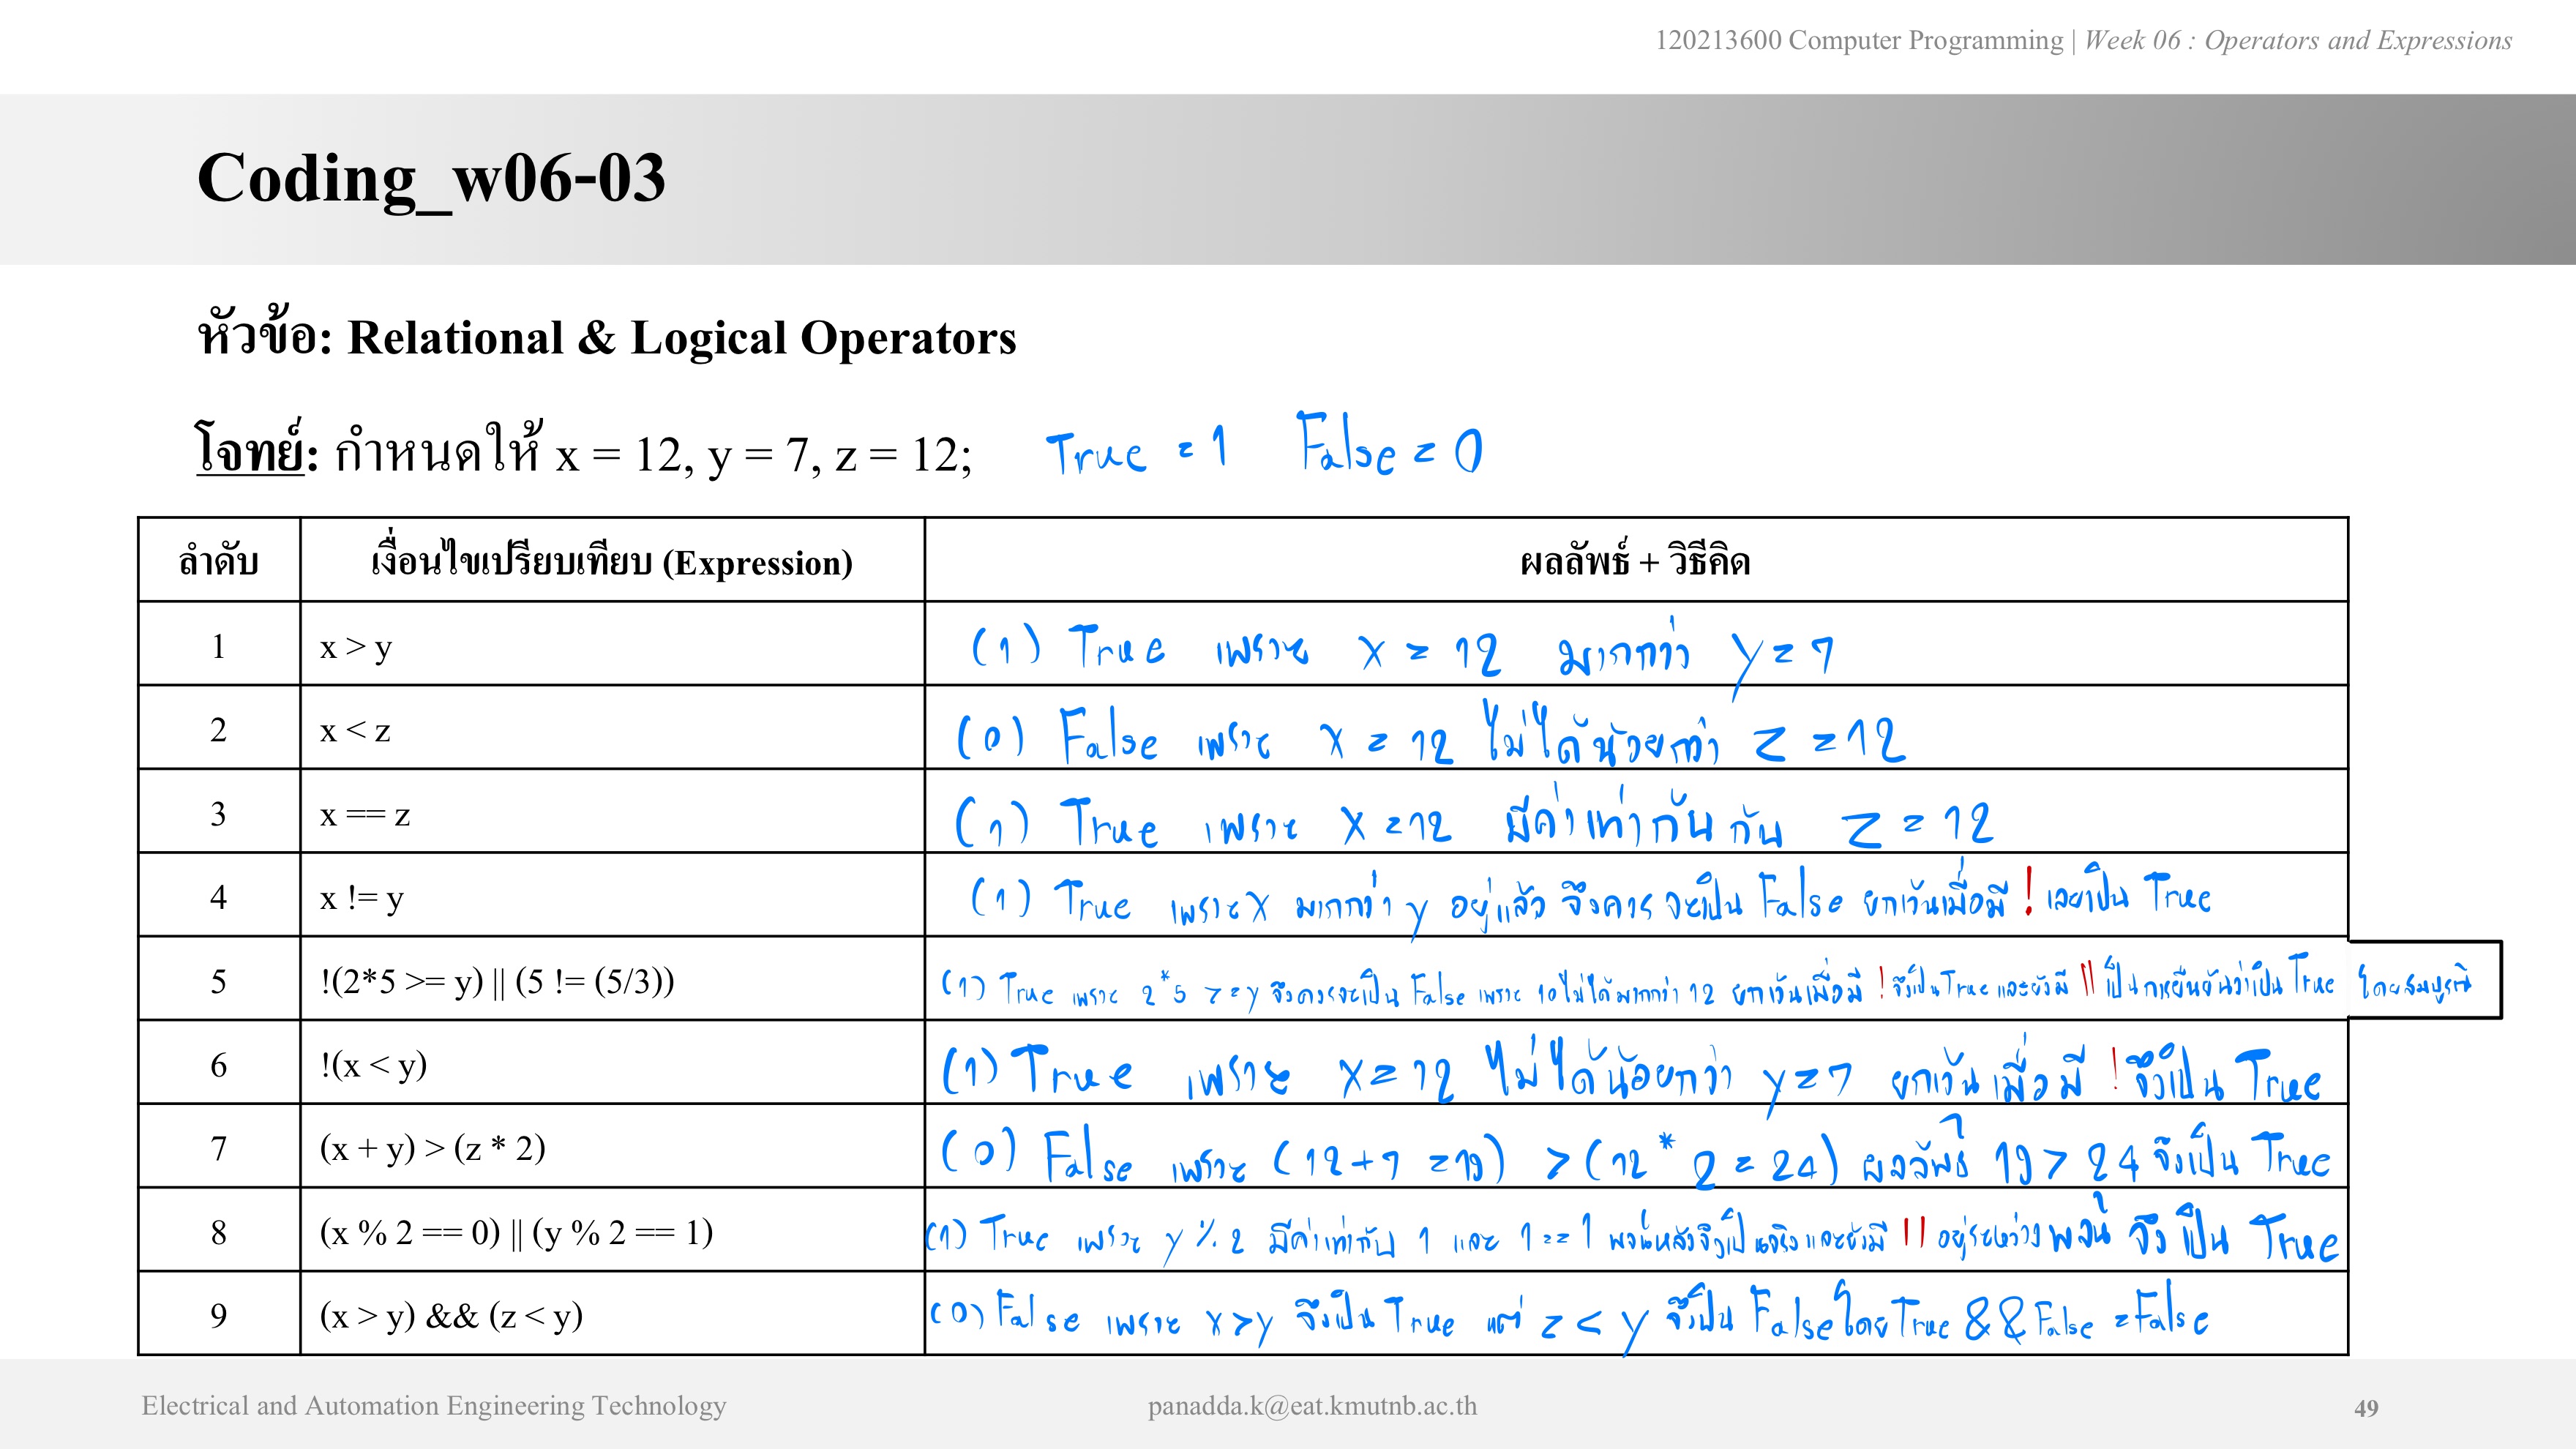 120213600 Computer Programming | Week 06 : Operators and Expressions
Coding_w06-03
หัวข้อ: Relational & Logical Operators
โจทย์: กำหนดให้ x = 12, y = 7, z = 12; True = 1 False = 0
ลำดับ เงื่อนไขเปรียบเทียบ (Expression) ผลลัพธ์ + วิธีคิด
1 x > y (1) True เพราะ x = 12 มากกว่า y = 7
2 x < z (0) False เพราะ x = 12 ไม่ได้น้อยกว่า z = 12
3 x == z (1) True เพราะ x = 12 มีค่าเท่ากันกับ z = 12
4 x != y (1) True เพราะ x มากกว่า y อยู่แล้ว จึงควรจะเป็น False ยกเว้นเมื่อมี ! เลยเป็น True
5 !(2*5 >= y) || (5 != (5/3)) (1) True เพราะ 2*5 >= y จึงควรจะเป็น False เพราะ 10 ไม่ได้มากกว่า 12 ยกเว้นเมื่อมี ! จึงเป็น True และยังมี || เป็นการยืนยันว่าเป็น True โดยสมบูรณ์
6 !(x < y) (1) True เพราะ x = 12 ไม่ได้น้อยกว่า y = 7 ยกเว้นเมื่อมี ! จึงเป็น True
7 (x + y) > (z * 2) (0) False เพราะ (12+7 = 19) > (12 * 2 = 24) ผลลัพธ์ 19 > 24 จึงเป็น True
8 (x % 2 == 0) || (y % 2 == 1) (1) True เพราะ y % 2 มีค่าเท่ากับ 1 และ 1 == 1 พจน์หลังจึงเป็นจริงและยังมี || อยู่ระหว่างพจน์ จึงเป็น True
9 (x > y) && (z < y) (0) False เพราะ x > y จึงเป็น True แต่ z < y จึงเป็น False โดย True && False = False
Electrical and Automation Engineering Technology panadda.k@eat.kmutnb.ac.th 49